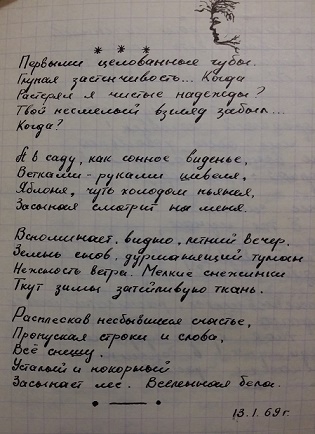 * * *
Первыми целованные губы.
Глупая застенчивость... Когда
Растерял я чистые надежды?
Твой несмелый взгляд забыл...
Когда?
А в саду, как сонное виденье,
Ветками-руками шевеля,
Яблоня, чуть холодом пьяная,
Засыпая смотрит на меня.
Вспоминает, видно, летний вечер.
Землю снов, дурманящий туман
Нежность ветра. Мелкие снежинки
Ткут зимы затейливую ткань.
Расплескав несбывшееся счастье,
Пропуская строки и слова,
Всё спешу.
Усталый и покорный
Засыпает лес. Вселенная бела.
13.1.69г.